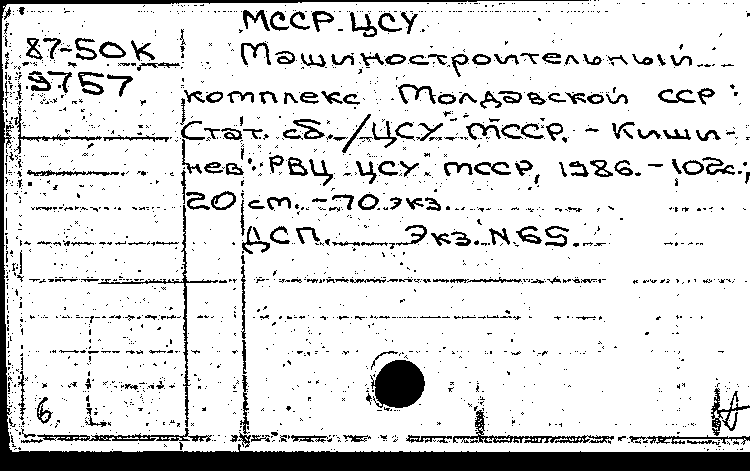 МССР. ЦСУ.
87-50К
9757
Машиностроительный
комплекс Молдавской ССР:
Стат. сб. / ЦСУ МССР. - Киши-
нев: РВЦ ЦСУ МССР, 1986. - 102с.;
20 см. - 70 экз.
ДСП. Экз. N 65.
6